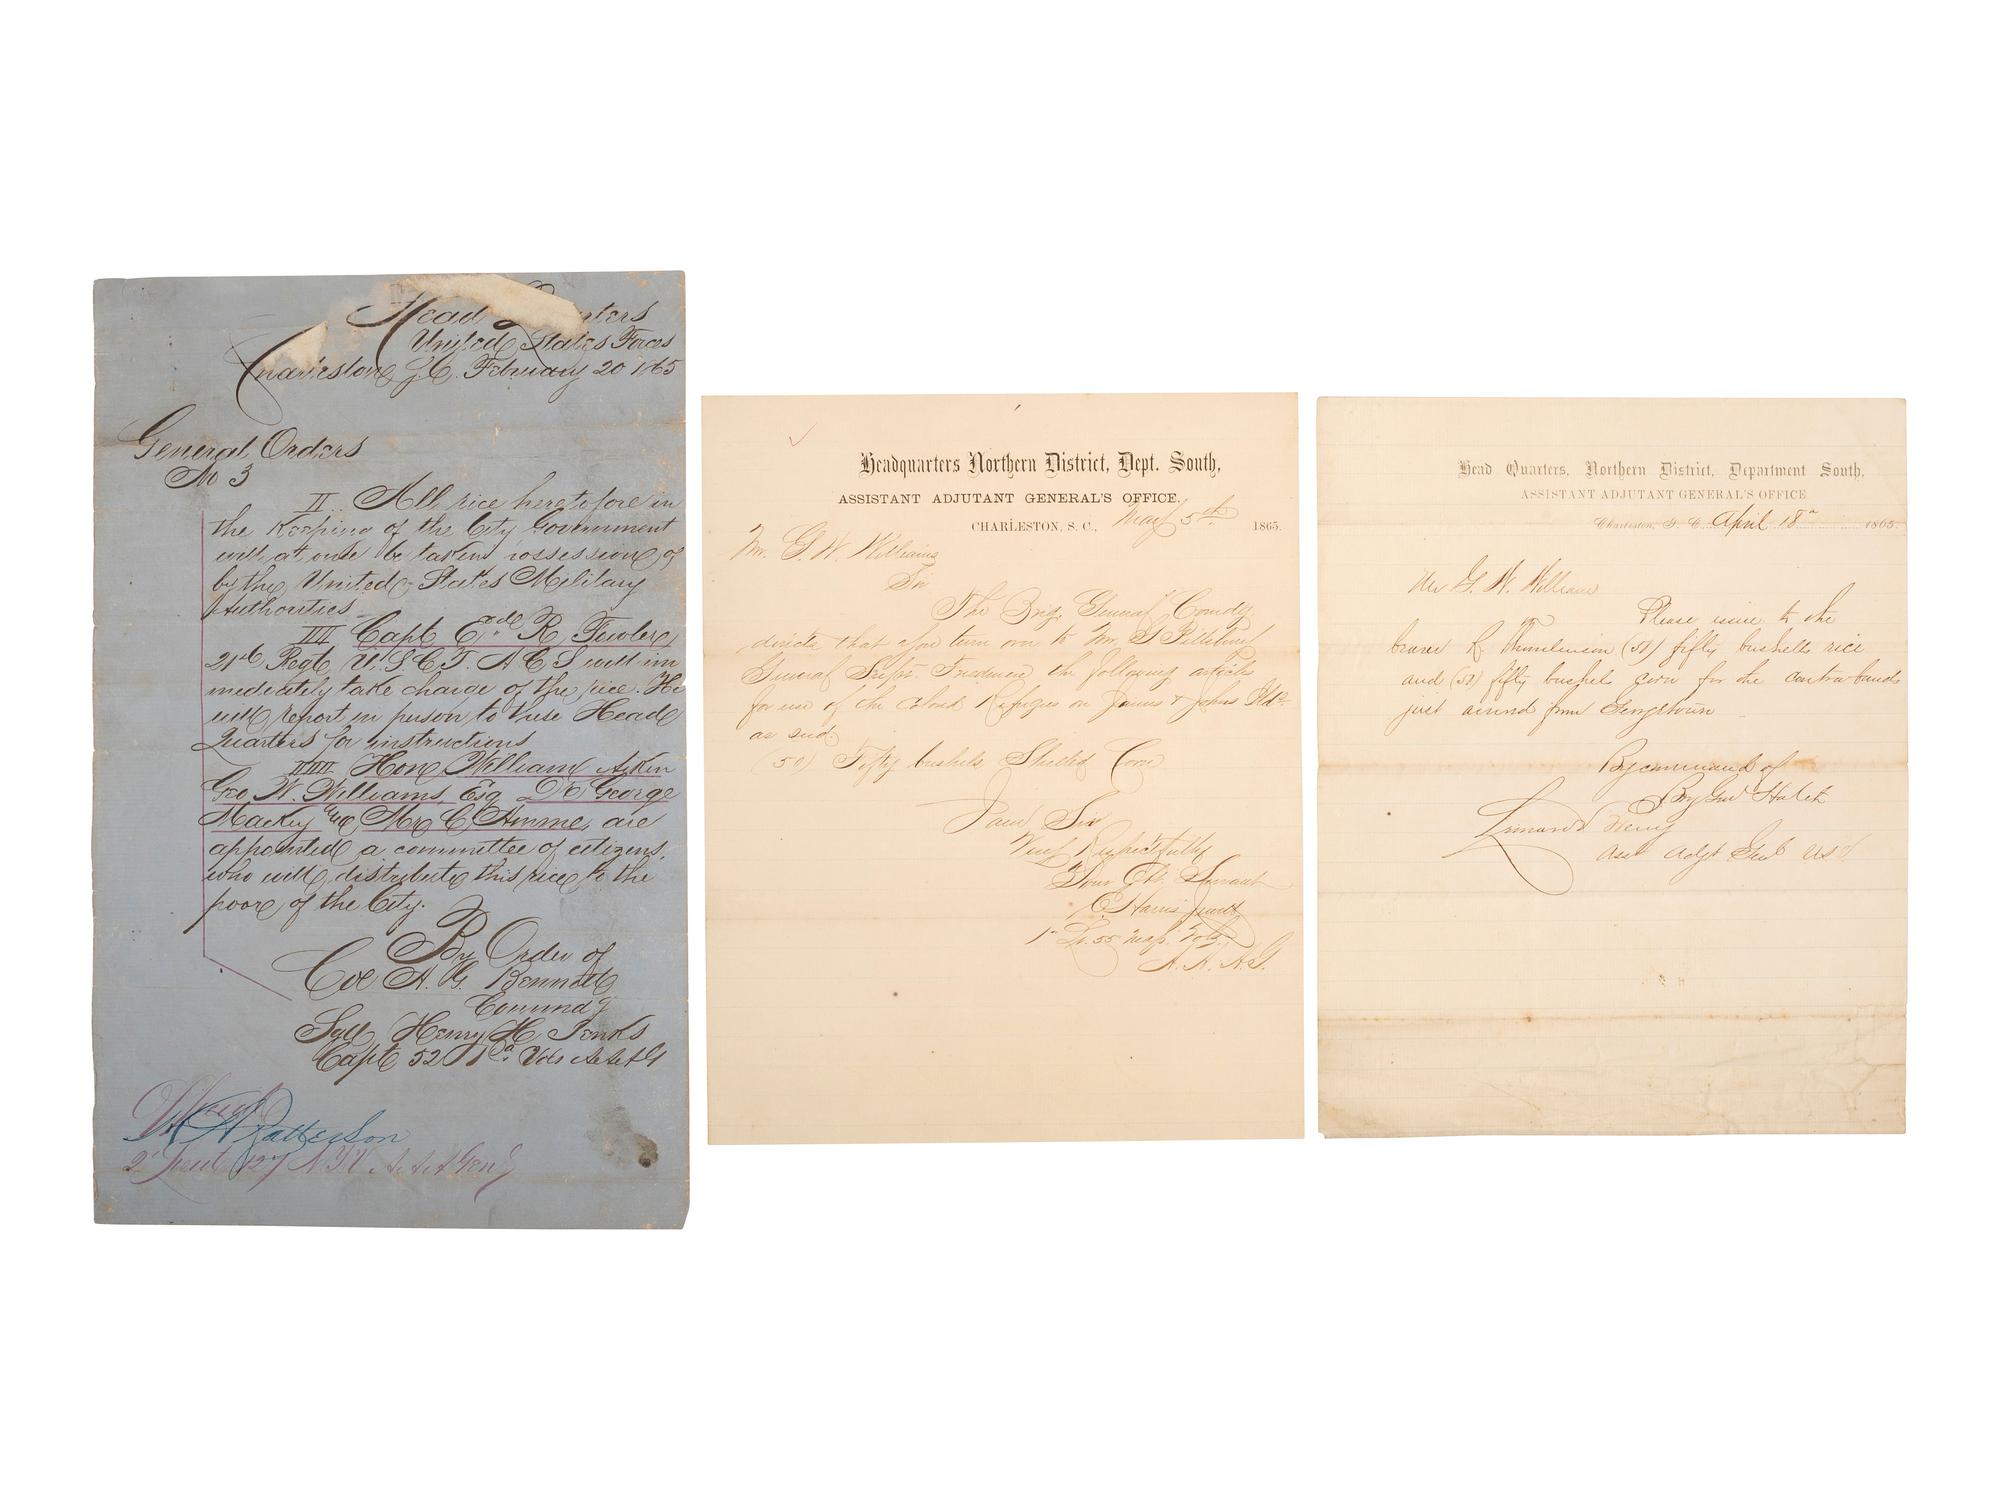 Head Quarters
United States Forces
Charleston S.C. February 20 1865
General Orders
No 3
II. All rice heretofore in
the Keeping of the City Government
will at once be taken possession of
by the United States Military
Authorities
III Capt Edd R. Fowler
21st Regt U.S.C.T. A C S will im
mediately take charge of the rice. He
will report in person to these Head
Quarters for instructions
IIII Hon William Aiken
Geo W. Williams, Esq Dr George
Mackey and Mr C Amme, are
appointed a committee of citizens,
who will distribute this rice to the
poor of the City.
By Order of
Col A. G. Bennett
Commdg
Sgd Henry H Jenks
Capt 52 Pa Vols A A A G
Official
Patterson
2d Lieut 127 N.Y.V. A.A.A Genl
Headquarters Northern District, Dept. South,
ASSISTANT ADJUTANT GENERAL'S OFFICE,
CHARLESTON, S. C., May 5th 1865.
Mr. G. W. Williams
Sir
The Brig. General Comdg.
directs that you turn over to Mr. G Pillsbury
General Supt. Freedmen the following articles
for use of the colored Refugees on James & Johns Ilds
as
(50) Fifty bushels Shelled Corn
I am Sir
Very Respectfully
Your Obt. Servant
C. Harris
1st Lt. 55 Mass. Vols.
A. A. A. G.
Head Quarters, Northern District, Department South,
ASSISTANT ADJUTANT GENERAL'S OFFICE
Charleston, S. C. April 18th 1865
Mr G. W. William
Please issue to the
bearer R. Tomlinson (50) fifty bushells rice
and (50) fifty bushels corn for the contrabands
just arrived from Georgetown
By command of
Brig Genl Hatch
Leonard Perry
Asst Adjt Genl USV